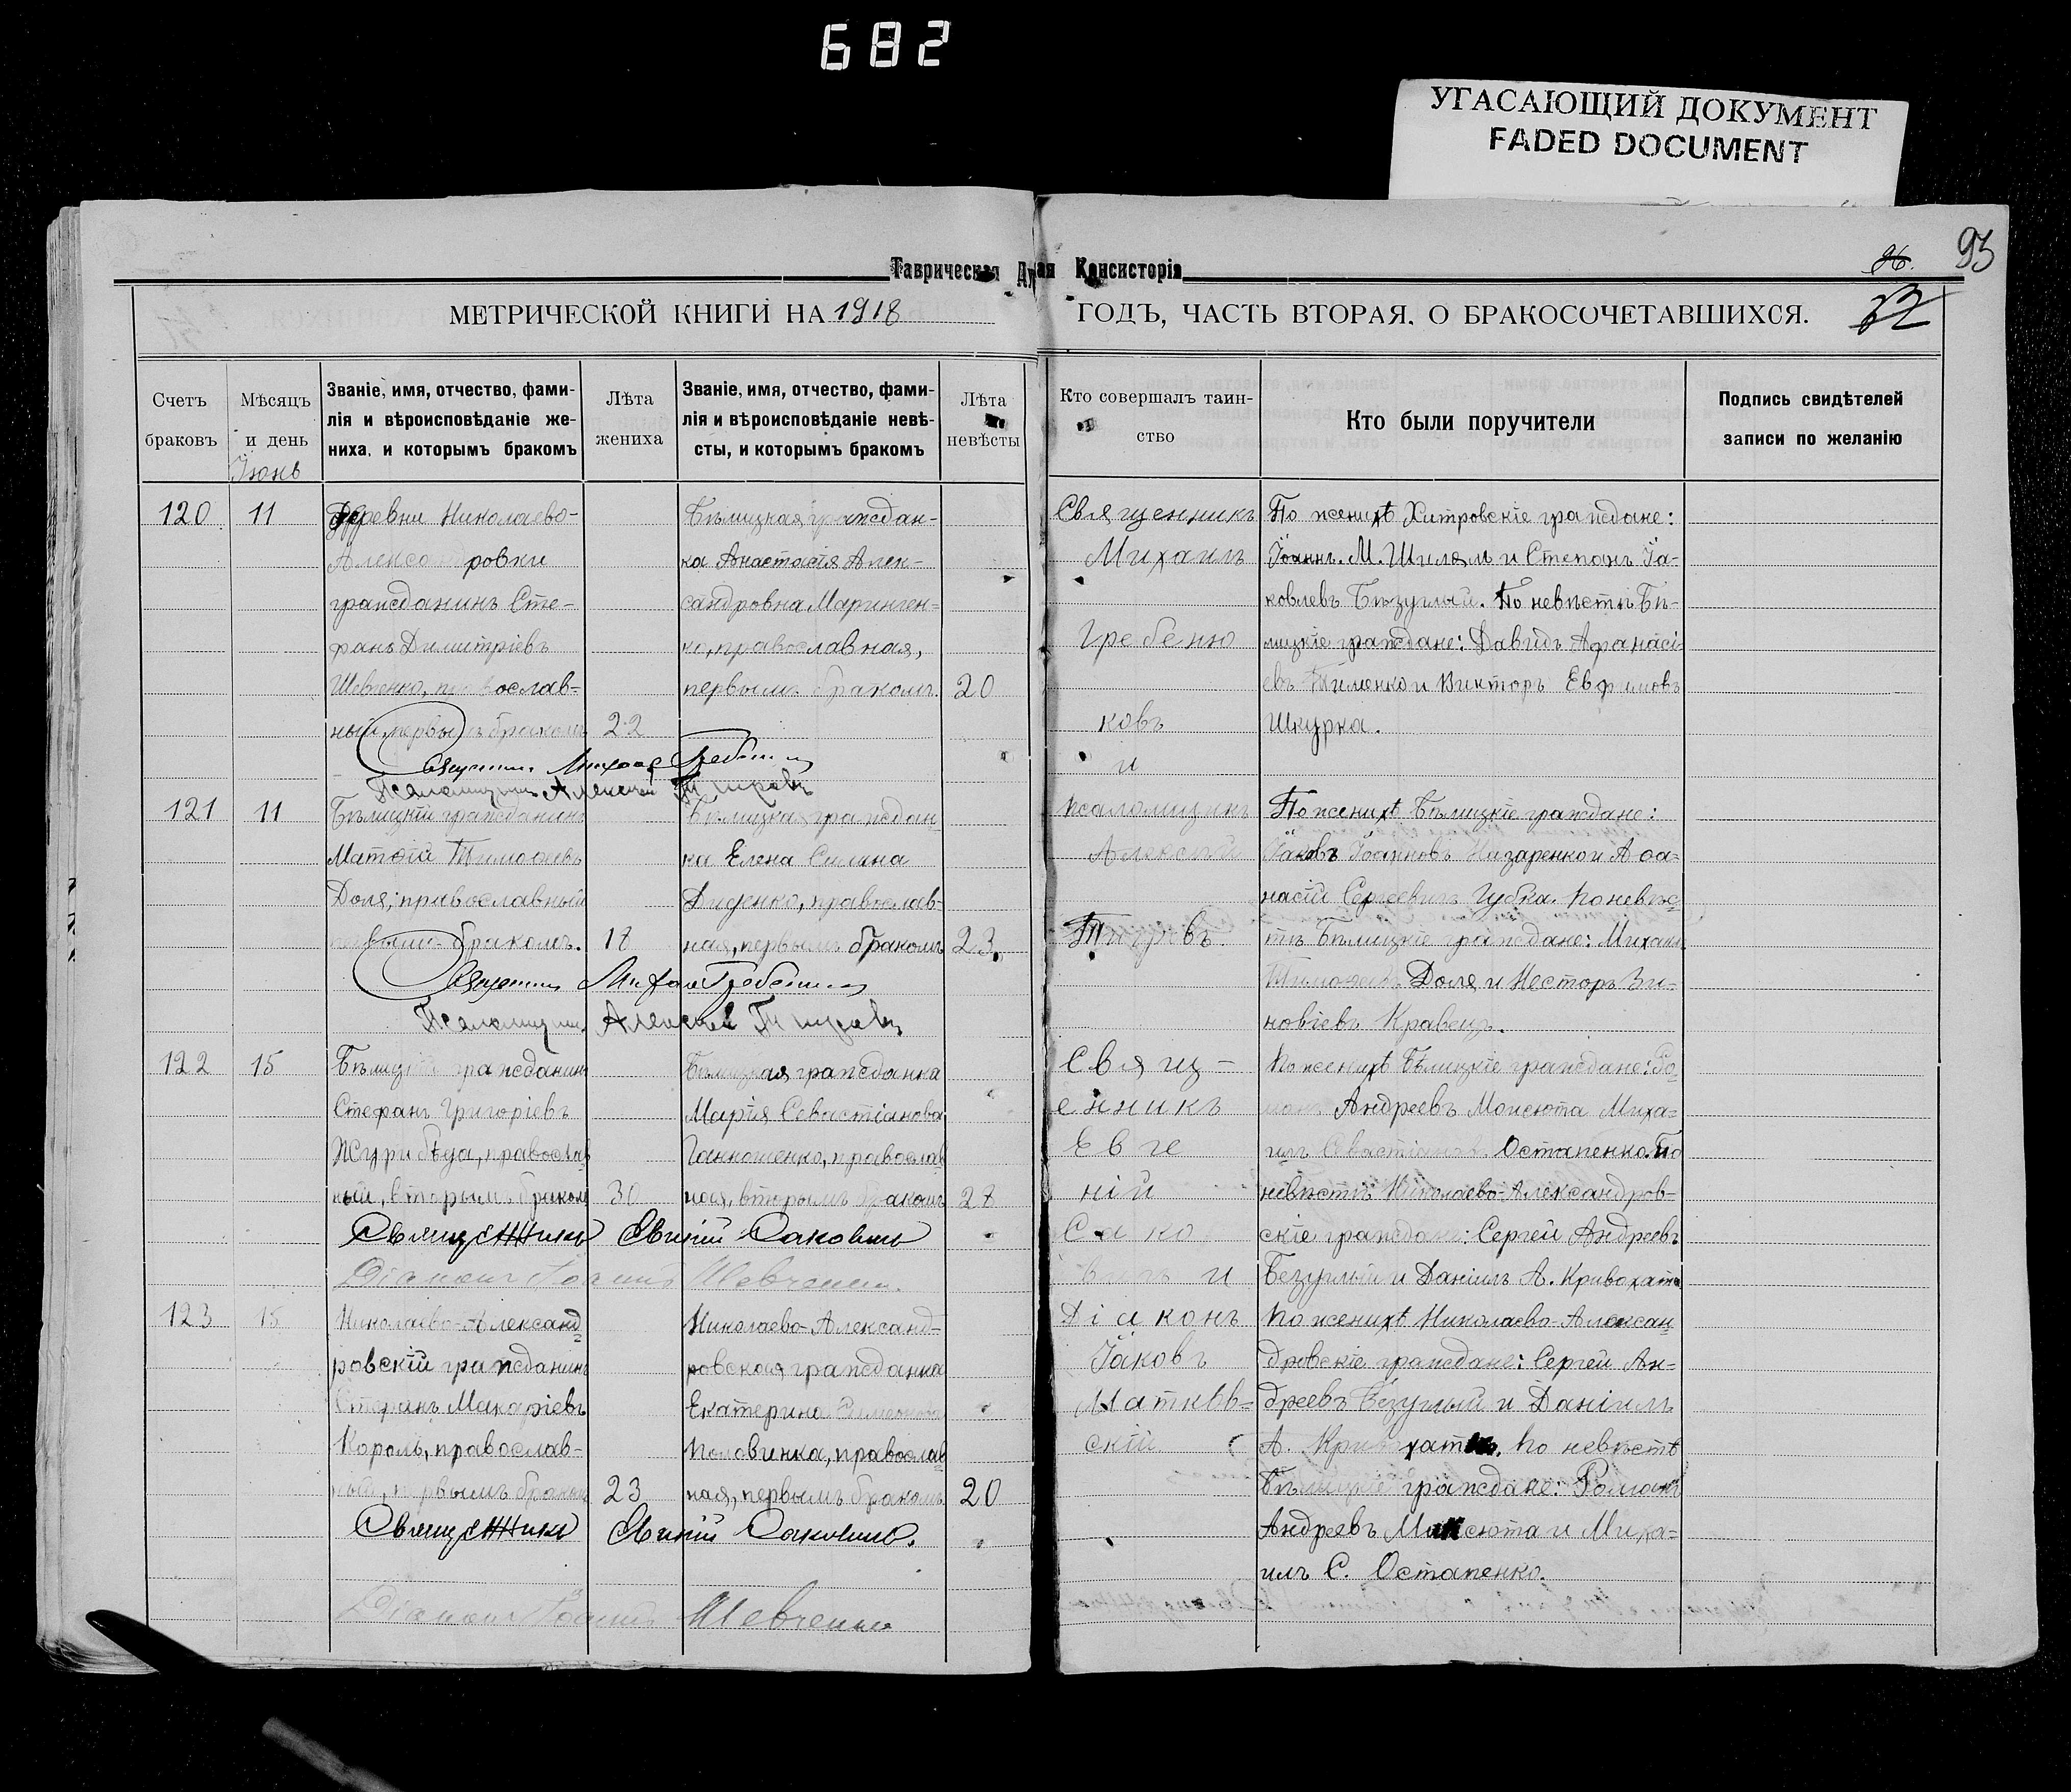 682
УГАСАЮЩИЙ ДОКУМЕНТ
FADED DOCUMENT
93
96.
Таврическая Консисторія
52
МЕТРИЧЕСКОЙ КНИГИ НА 1918
ГОДЪ, ЧАСТЬ ВТОРАЯ, О БРАКОСОЧЕТАВШИХСЯ.
Счетъ браковъ
Мѣсяцъ и день
Званіе, имя, отчество, фами-
лія и вѣроисповѣданіе же-
ниха, и которымъ бракомъ
Лѣта жениха
Званіе, имя, отчество, фами-
лія и вѣроисповѣданіе невѣ-
сты, и которымъ бракомъ
Лѣта невѣсты
Кто совершалъ таин-
ство
Кто были поручители
Подпись свидѣтелей
записи по желанію
Іюнь
120
11
Деревни Николаево-
Александровки
гражданинъ Сте-
фанъ Димитріевъ
Шевченко, православ-
ный, первымъ бракомъ
22
Бѣлицкая граждан-
ка Анастасія Алек-
сандровна Маринген-
ко, православная,
первымъ бракомъ.
20
Священникъ
Михаилъ
Гребеню
ковъ
и
По женихѣ Хитровскіе граждане:
Іоаннъ. М. Шилям и Степанъ Іа-
ковлевъ Бѣзуглый. По невѣстѣ Бѣ-
лицкіе граждане: Давидъ Афанасі-
евъ Тименко и Викторъ Евфимовъ
Шкурка.
Священникъ Михаилъ
Псаломщикъ Алексѣй
121
11
Бѣлицкій гражданинъ
Матѳій Тимоѳеевъ
Доля, православный
первымъ бракомъ.
17
Бѣлицкая граждан-
ка Елена Силина
Диденко, православ-
ная, первымъ бракомъ
23
Псаломщикъ
Алексѣй
По женихѣ Бѣлицкіе граждане:
Іаковъ Іоанновъ Назаренко и Аѳа-
насій Сергеевичъ Губка. По невѣс-
тѣ Бѣлицкіе граждане: Михаилъ
Тимоѳеевъ Доля и Несторъ Зи-
новіевъ Кравецъ.
Священникъ Михаилъ
Псаломщикъ Алексѣй
122
15
Бѣлицкій гражданинъ
Стефанъ Григоріевъ
Журибѣда, православ
ный, вторымъ бракомъ
30
Бѣлицкая гражданка
Марія Севастіанова
Ганношенко, православ
ная, вторымъ бракомъ
27
Свящ-
енникъ
Евге
ній
Сако
вичъ и
По женихѣ Бѣлицкіе граждане: Ро-
манъ Андреевъ Моисюта Миха-
илъ Севастіановъ Остапенко. По
невѣстѣ Николаево-Александров-
скіе граждане: Сергей Андреевъ
Безуглый и Даніилъ А. Кривохата
Священникъ Евгеній Саковичъ
Діаконъ Шевченко
123
15
Николаево-Александ-
ровскій гражданинъ
Стефанъ Макаріевъ
Король, православ-
ный, первымъ бракомъ
23
Николаево-Александ-
ровская гражданка
Екатерина
Половинка, православ-
ная, первымъ бракомъ
20
Діаконъ
Іаковъ
Матков-
скій
По женихѣ Николаево-Алексан-
дровскіе граждане: Сергей Ан-
дреевъ Безуглый и Даніилъ
А. По невѣстѣ
Бѣлицкіе граждане: Романъ
Андреевъ Моисюта и Миха-
илъ С. Остапенко.
Священникъ Евгеній Саковичъ.
Діаконъ Шевченко